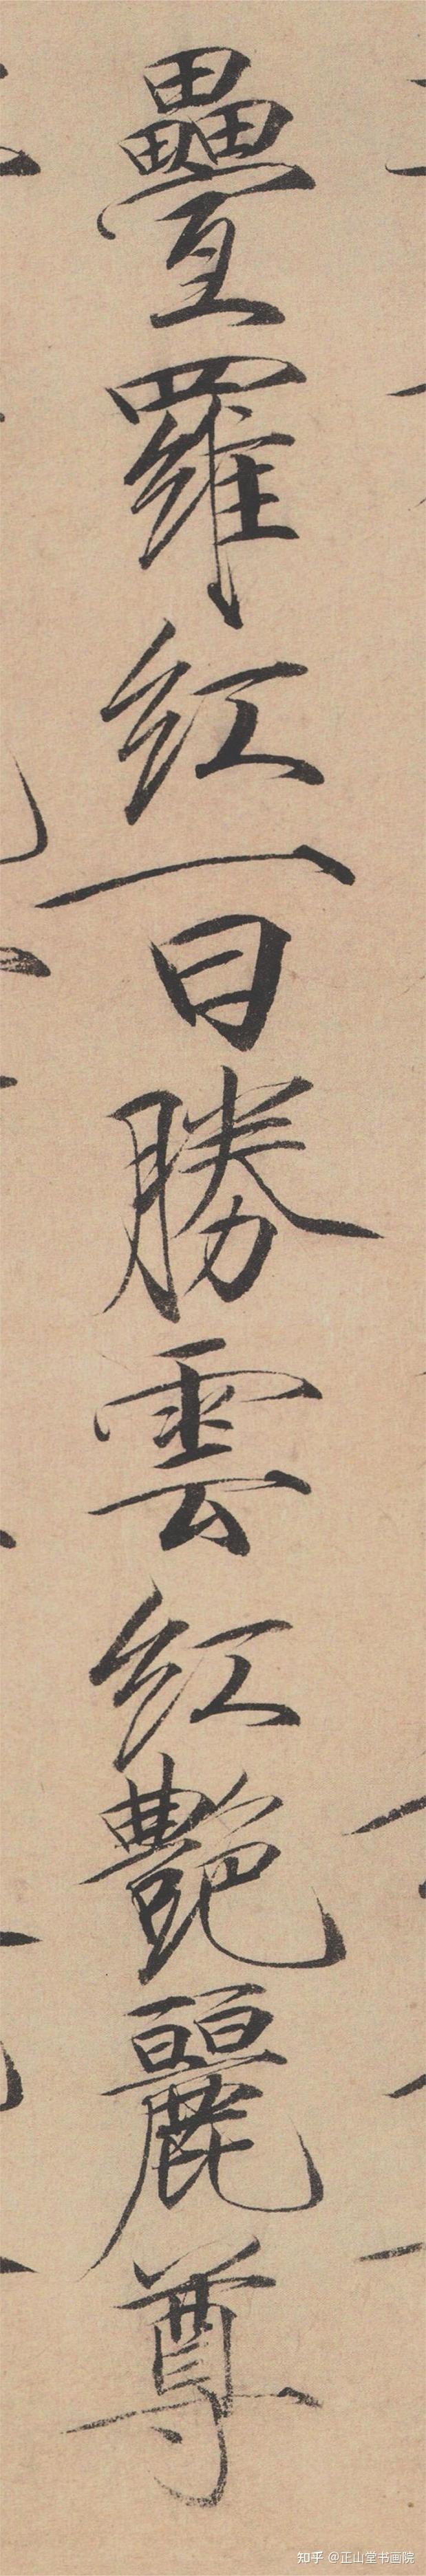 疊羅紅一曰勝雲紅艷麗尊
知乎 @正山堂书画院